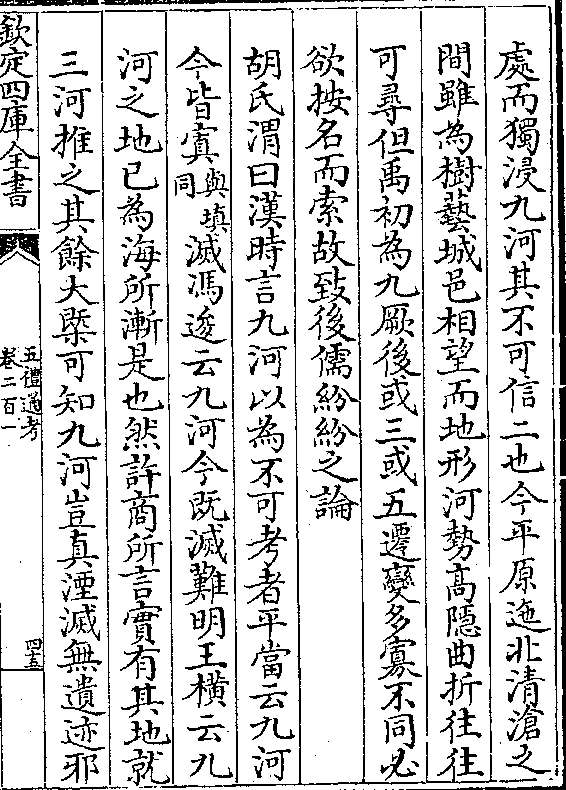 處而獨浸九河其不可信二也今平原迤北清滄之
間雖為樹藝城邑相望而地形河勢髙隱曲折往往
可尋但禹初為九厥後或三或五遷變多寡不同必
欲按名而索故致後儒紛紛之論
胡氏渭曰漢時言九河以為不可考者平當云九河
今皆寘與填同滅馮逡云九河今既滅難明王横云九
河之地已為海所漸是也然許商所言實有其地就
三河推之其餘大槩可知九河豈真湮滅無遺迹邪
欽定四庫全書
五禮通考
卷二百一
四五